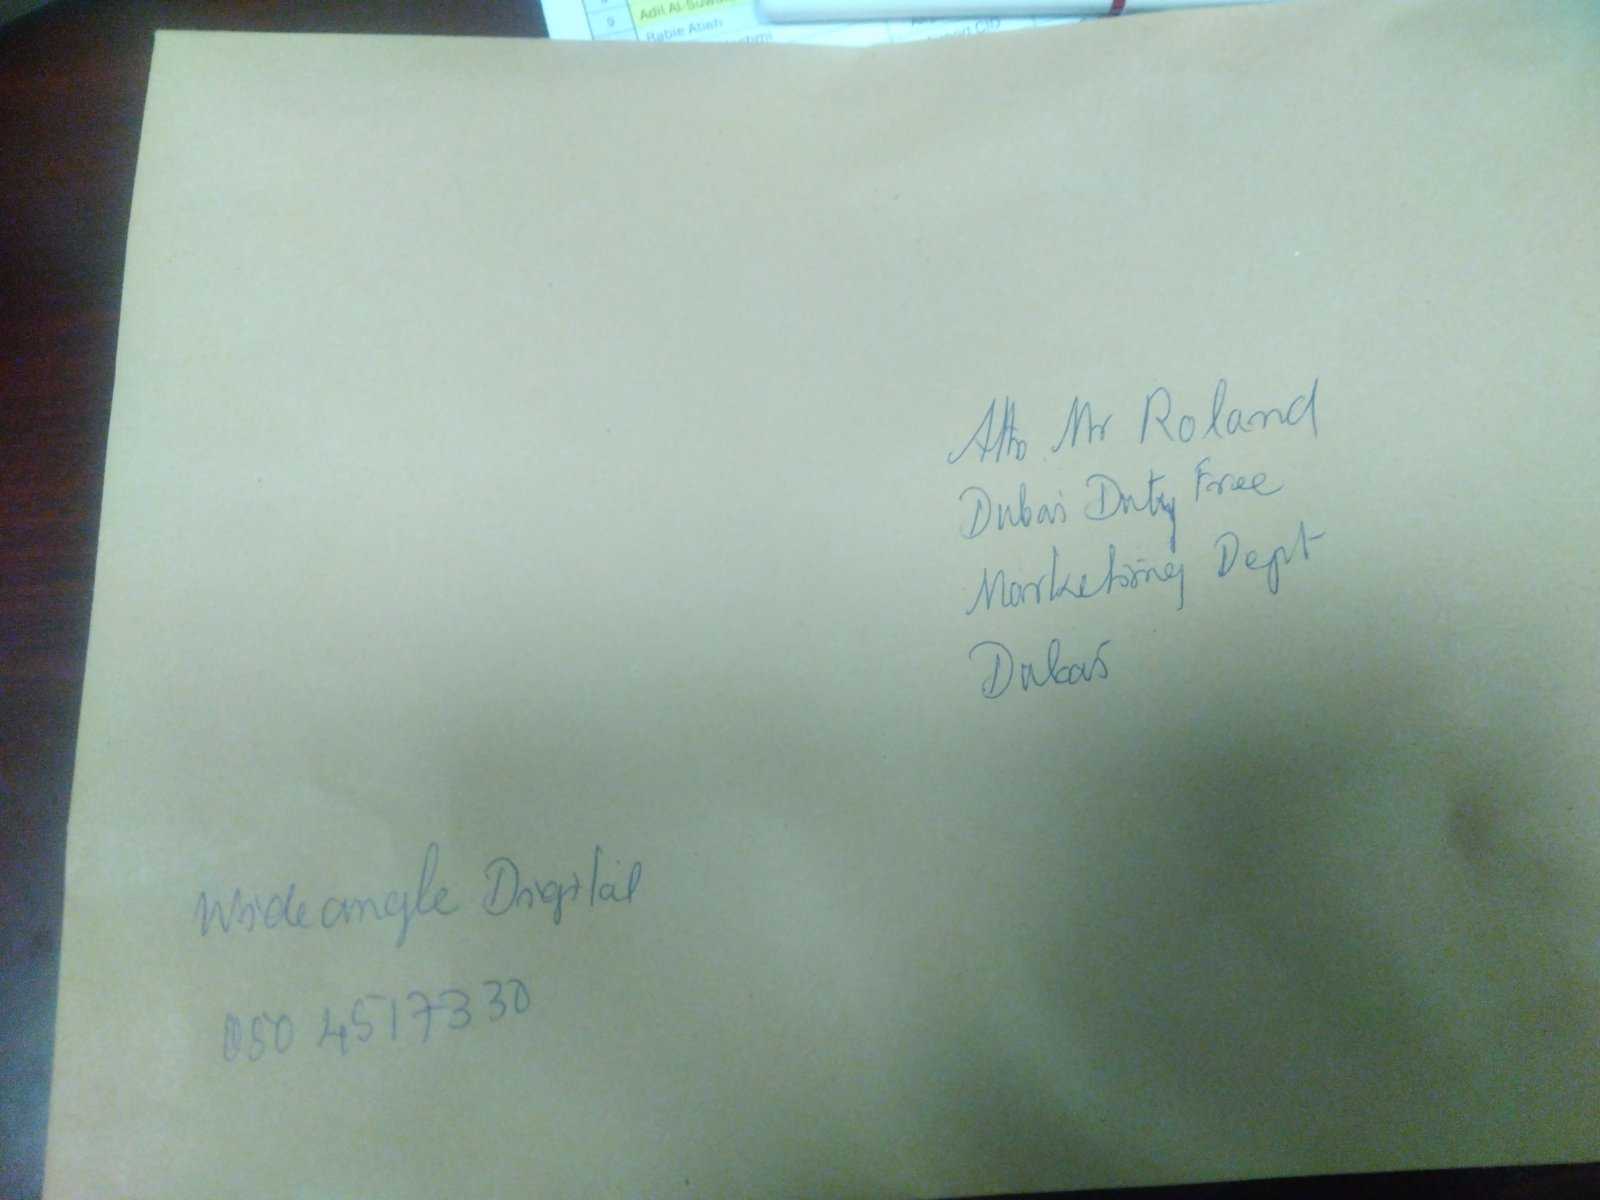 9 Adil Al-Suwa
Rabie Atieh
Attn Mr Roland
Dubai Duty Free
Marketing Dept
Dubai
Wideangle Digital
050 4517330